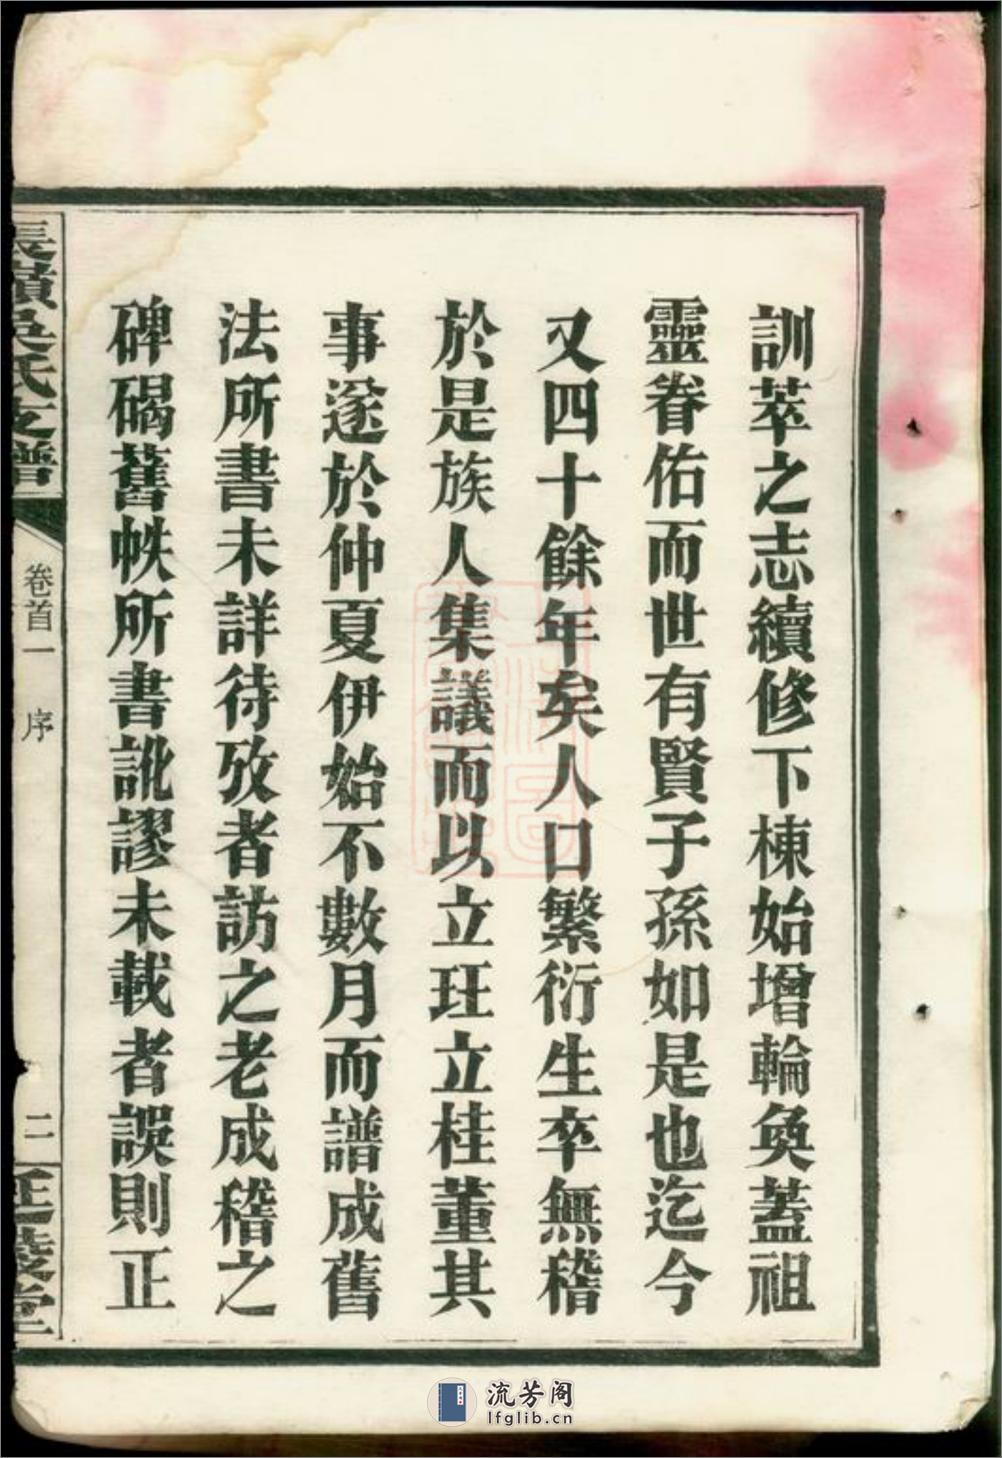 訓萃之志續修下棟始增輪奐蓋祖
靈眷佑而世有賢子孫如是也迄今
又四十餘年矣人口繁衍生卒無稽
於是族人集議而以立玨立桂董其
事遂於仲夏伊始不數月而譜成舊
法所書未詳待攷者訪之老成稽之
碑碣舊帙所書訛謬未載者誤則正
長嶺吳氏支譜
卷首一 序
二
延陵堂
流芳阁
lfglib.cn